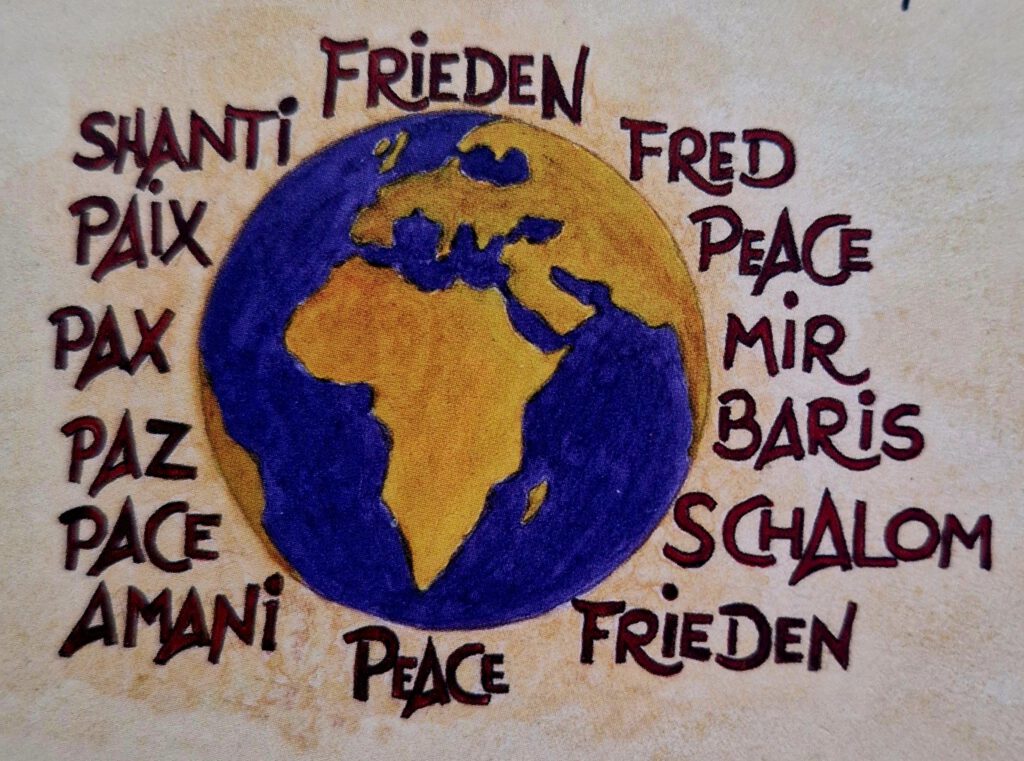 FRiEDEN
SHANTi
FRED
PAiX
PEACE
PAX
MiR
PAZ
BARiS
PACE
SCHALOM
AMANi
FRiEDEN
PEACE